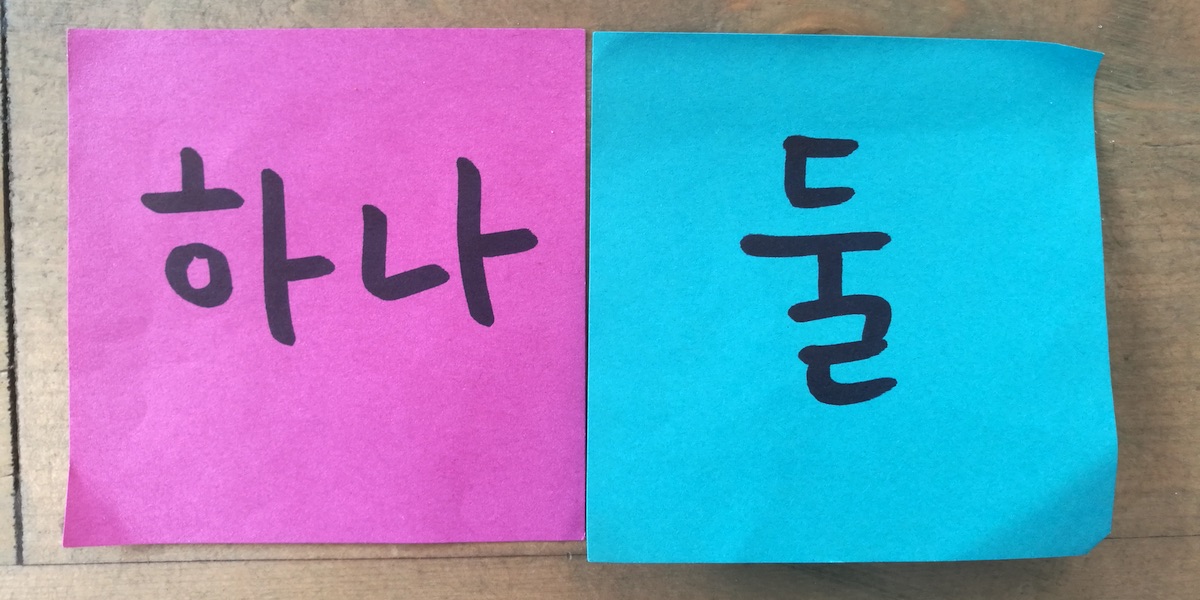 하나
둘